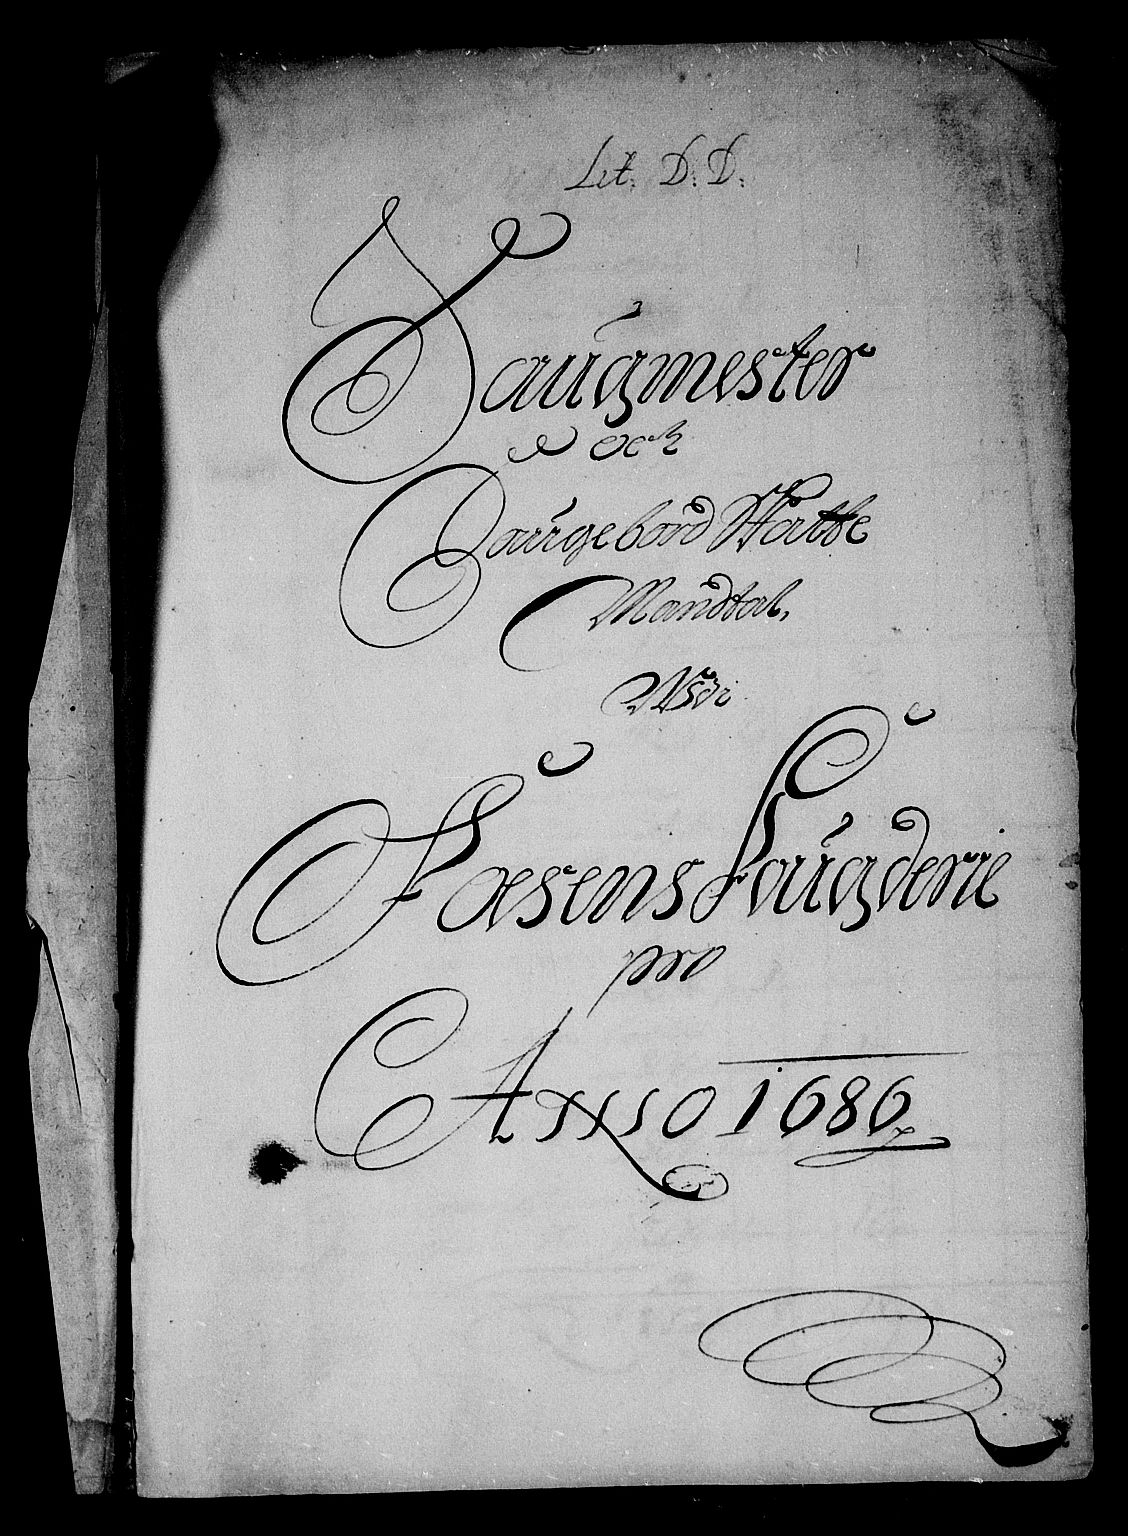 Lit. D. D.
Saugmester
och
Saugebord Skatte
Mandtal,
Udi
Fosens Faugderie
pro
Anno 1686